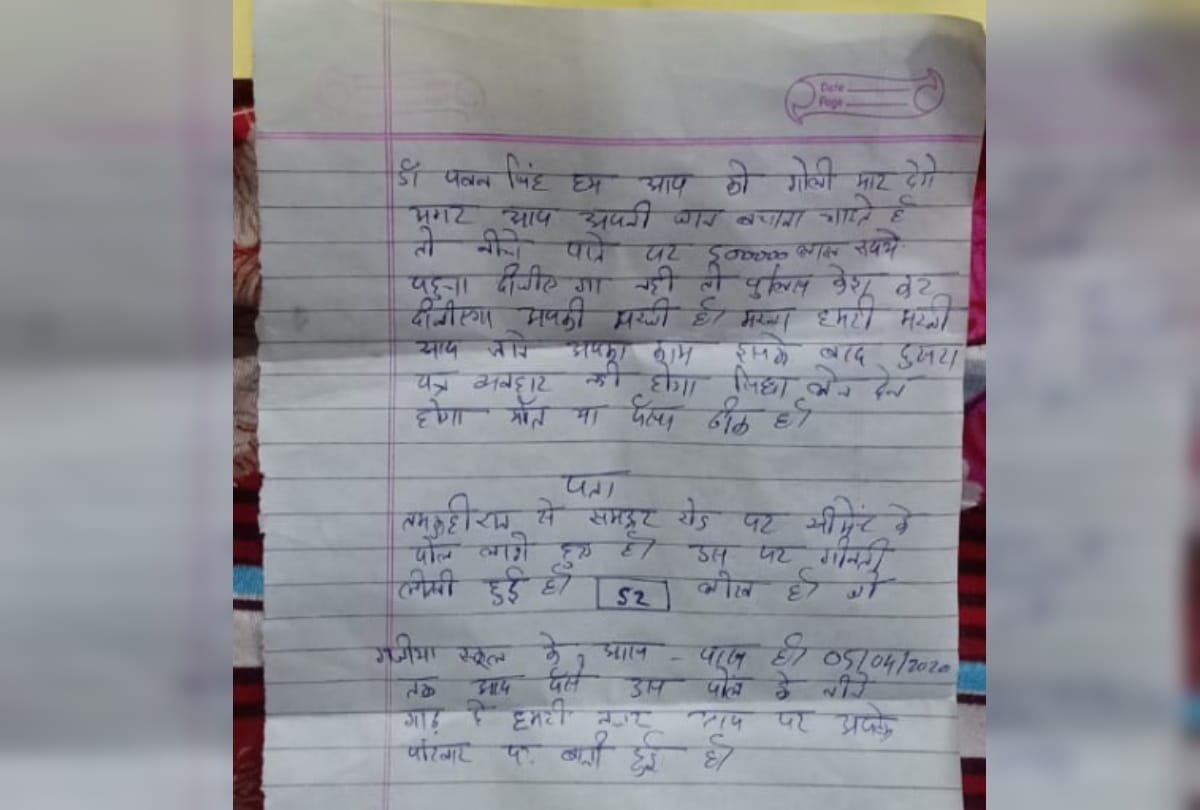 Date
Page
डॉ पवन सिंह हम आप को गोली मार देगे
अगर आप अपनी जान बचाना चाहते है
तो नीचे पाते पर रूपये
पहुचा दीजीए गा नही तो पुलिस केश कर
दीजीएगा आपकी मरजी है। मरना हमारी मरजी
आप जाने आपका काम इसके बाद दुसरा
पत्र नही होगा सिधा लेन देन
होगा मौत या पैसा ठीक है।
पता
तमकुहीराज से समऊर रोड पर सीमेंट के
पोल लागे हुए है। उस पर गीनती
लीखी हुई है। 52 लीख है। जो
स्कूल के आस - पास है। 05/04/2020
तक आप पैसे उस पोल के नीचे
गाढ़ दे हमारी नजर आप पर आपके
परिवार पर बानी हुई है।